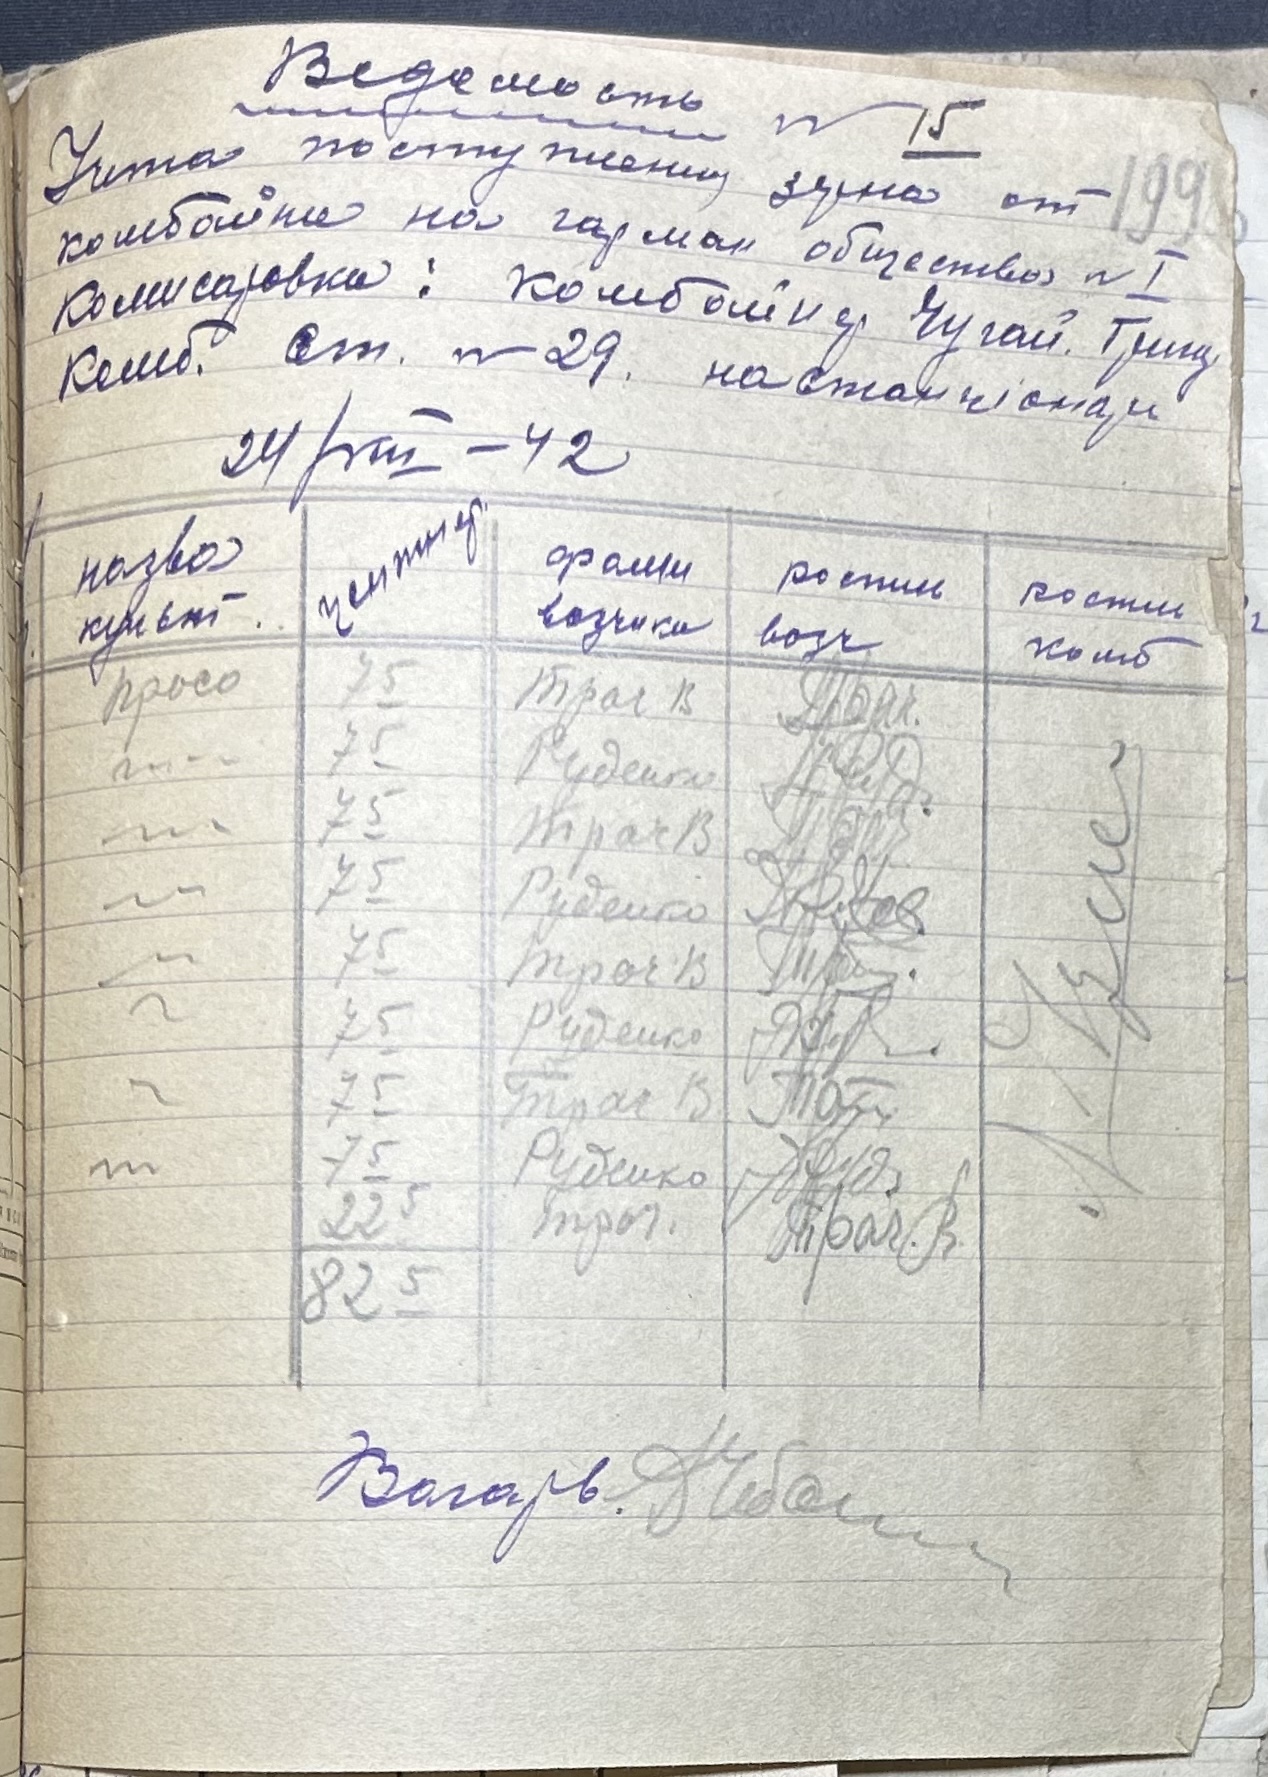 Ведомость № 15
Учота поступления зерна от 199
комбайна на гарман общество № I
Комисаровка: Комбайнер Чугай. Гриц
Комб. Ст. № 29. на станціонарі
24/VIII – 42
назва культ. центнер. фамил возчика роспис возч роспис комб
просо 75 Трач В Трач.
75 Руденко
75 Трач В
75 Руденко
75 Трач В
75 Руденко
75 Трач В
75 Руденко
22 5 Трач. Трач. В.
82 5
Вагарв.